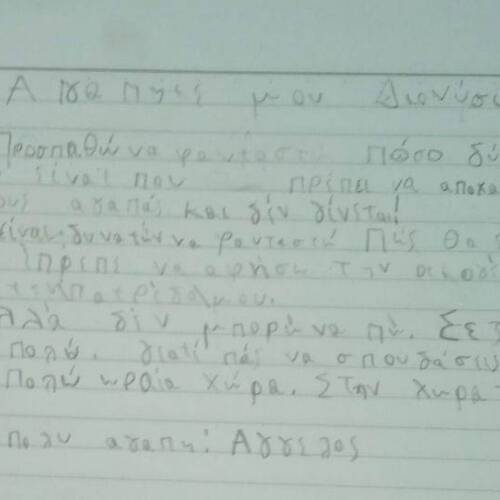 Αγαπητέ μου Διονύσ
Προσπαθώ να φανταστώ πόσο δύ
είναι που πρέπει να αποχα
ους αγαπάς και δεν γίνεται!
είναι δυνατόν να φανταστώ Πώς θα
έπρεπε να αφήσω την οικογ
την πατρίδα μου.
λλά δεν μπορώ να πω. Σε
πολύ, γιατί πάς να σπουδάσεις
πολύ ωραία χώρα. Στην χώρα
πολυ αγαπη: Αγγελος